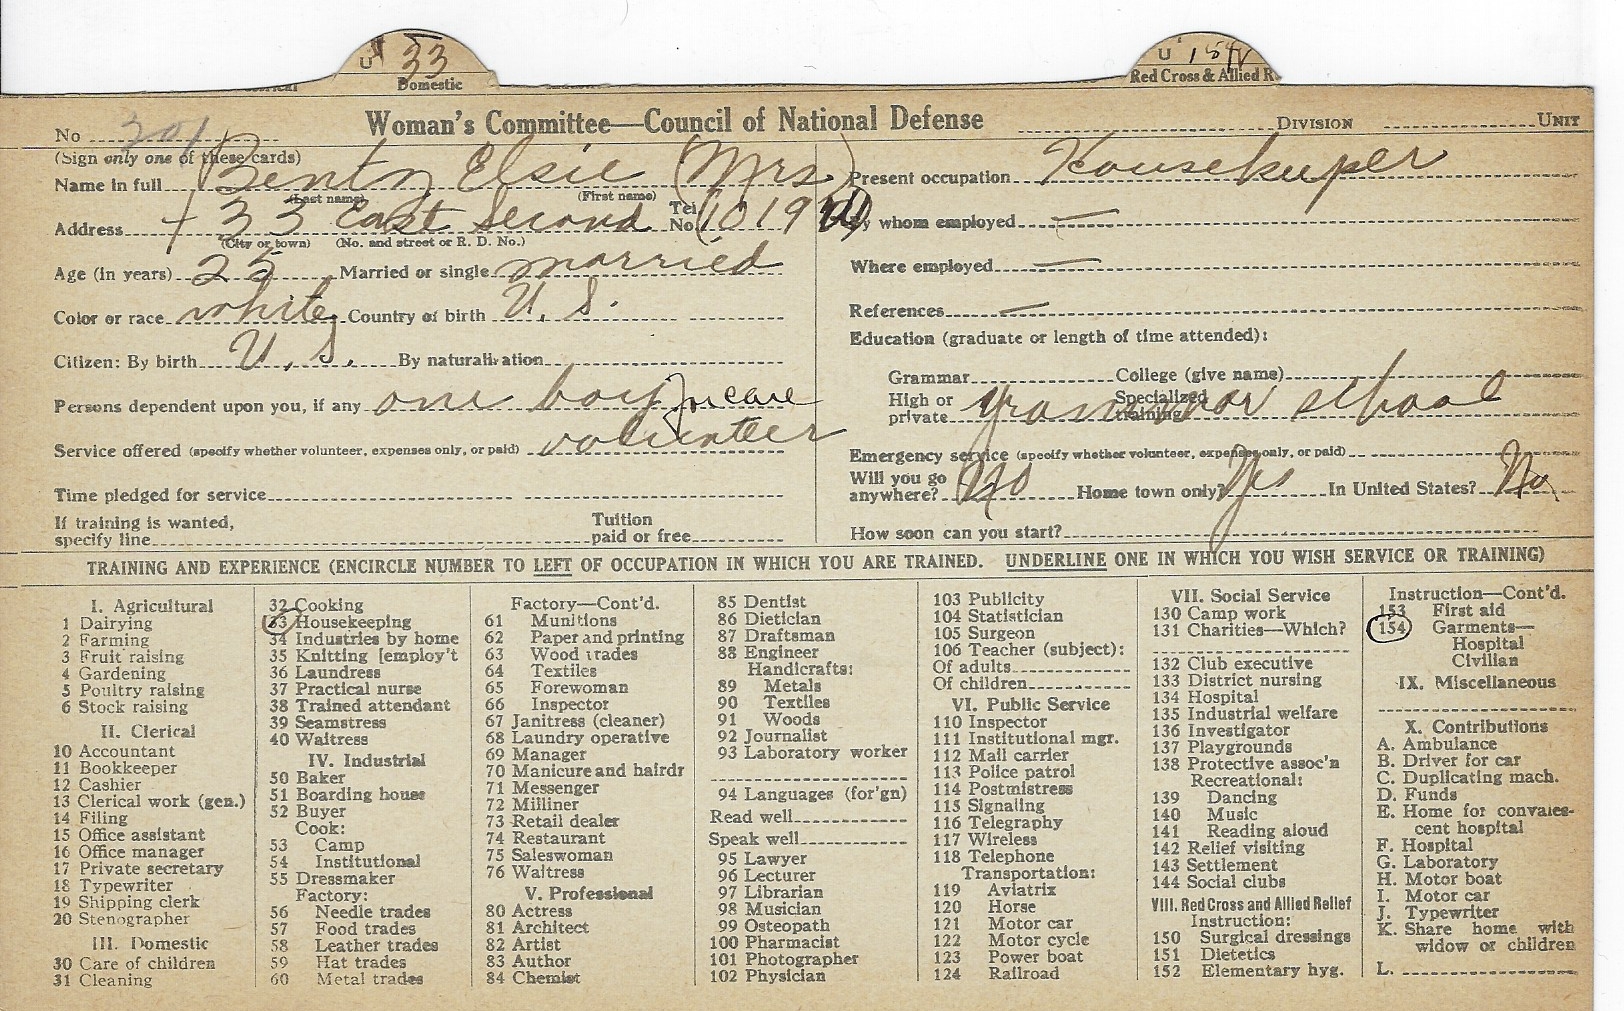 U 33
Domestic
U 154
Red Cross & Allied R
Woman's Committee—Council of National Defense DIVISION UNIT
No 301
(Sign only one of these cards)
Name in full Elsie (Mrs)
(Last name) (First name)
Address 33 East Second Tel. No. 1019
(City or town) (No. and street or R. D. No.)
Age (in years) 25 Married or single married
Color or race white Country of birth U. S.
Citizen: By birth U. S. By naturalization
Persons dependent upon you, if any one boy for care
Service offered (specify whether volunteer, expenses only, or paid) volunteer
Time pledged for service
If training is wanted,
specify line
Tuition
paid or free
Present occupation Housekeeper
By whom employed —
Where employed —
References —
Education (graduate or length of time attended):
Grammar College (give name)
High or
private
Specialized
training
grammar school
Emergency service (specify whether volunteer, expenses only, or paid)
Will you go
anywhere? No Home town only? Yes In United States? No
How soon can you start?
TRAINING AND EXPERIENCE (ENCIRCLE NUMBER TO LEFT OF OCCUPATION IN WHICH YOU ARE TRAINED. UNDERLINE ONE IN WHICH YOU WISH SERVICE OR TRAINING)
I. Agricultural
1 Dairying
2 Farming
3 Fruit raising
4 Gardening
5 Poultry raising
6 Stock raising
II. Clerical
10 Accountant
11 Bookkeeper
12 Cashier
13 Clerical work (gen.)
14 Filing
15 Office assistant
16 Office manager
17 Private secretary
18 Typewriter
19 Shipping clerk
20 Stenographer
III. Domestic
30 Care of children
31 Cleaning
32 Cooking
33 Housekeeping
34 Industries by home
35 Knitting [employ't
36 Laundress
37 Practical nurse
38 Trained attendant
39 Seamstress
40 Waitress
IV. Industrial
50 Baker
51 Boarding house
52 Buyer
Cook:
53 Camp
54 Institutional
55 Dressmaker
Factory:
56 Needle trades
57 Food trades
58 Leather trades
59 Hat trades
60 Metal trades
Factory—Cont'd.
61 Munitions
62 Paper and printing
63 Wood trades
64 Textiles
65 Forewoman
66 Inspector
67 Janitress (cleaner)
68 Laundry operative
69 Manager
70 Manicure and hairdr
71 Messenger
72 Milliner
73 Retail dealer
74 Restaurant
75 Saleswoman
76 Waitress
V. Professional
80 Actress
81 Architect
82 Artist
83 Author
84 Chemist
85 Dentist
86 Dietician
87 Draftsman
88 Engineer
Handicrafts:
89 Metals
90 Textiles
91 Woods
92 Journalist
93 Laboratory worker
94 Languages (for'gn)
Read well
Speak well
95 Lawyer
96 Lecturer
97 Librarian
98 Musician
99 Osteopath
100 Pharmacist
101 Photographer
102 Physician
103 Publicity
104 Statistician
105 Surgeon
106 Teacher (subject):
Of adults
Of children
VI. Public Service
110 Inspector
111 Institutional mgr.
112 Mail carrier
113 Police patrol
114 Postmistress
115 Signaling
116 Telegraphy
117 Wireless
118 Telephone
Transportation:
119 Aviatrix
120 Horse
121 Motor car
122 Motor cycle
123 Power boat
124 Railroad
VII. Social Service
130 Camp work
131 Charities—Which?
132 Club executive
133 District nursing
134 Hospital
135 Industrial welfare
136 Investigator
137 Playgrounds
138 Protective assoc'n
Recreational:
139 Dancing
140 Music
141 Reading aloud
142 Relief visiting
143 Settlement
144 Social clubs
VIII. Red Cross and Allied Relief
Instruction:
150 Surgical dressings
151 Dietetics
152 Elementary hyg.
Instruction—Cont'd.
153 First aid
154 Garments—
Hospital
Civilian
IX. Miscellaneous
X. Contributions
A. Ambulance
B. Driver for car
C. Duplicating mach.
D. Funds
E. Home for convales-
cent hospital
F. Hospital
G. Laboratory
H. Motor boat
I. Motor car
J. Typewriter
K. Share home with
widow or children
L.